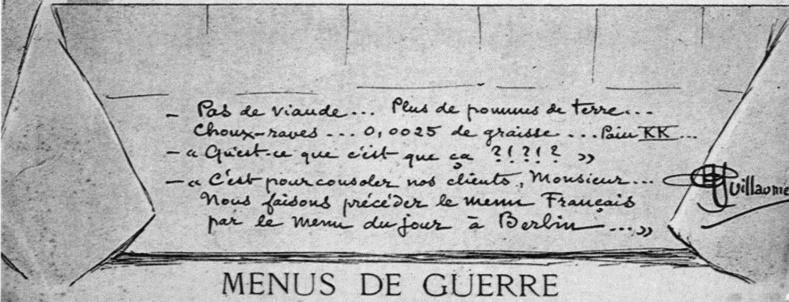 – Pas de viande... Plus de pommes de terre...
Choux-raves... 0,0025 de graisse... Pain KK...
– « Qu'est-ce que c'est que ça ?!?!? »
– « C'est pour consoler nos clients, Monsieur...
Nous faisons précéder le menu Français
par le menu du jour à Berlin...»
Guillaume
MENUS DE GUERRE